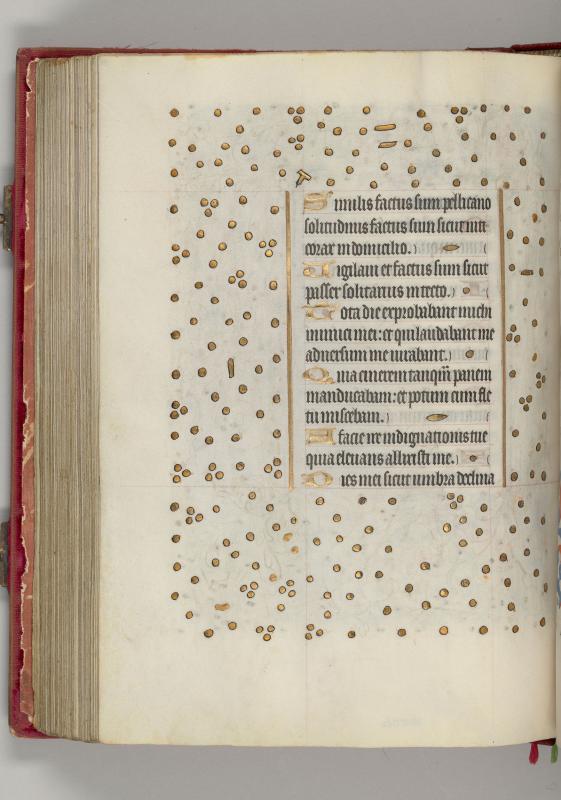 Similis factus sum pellicano
solitudinis factus sum sicut nit
corax in domicilio.
Vigilavi et factus sum sicut
passer solitarius in tecto.
Tota die exprobabant michi
inimici mei: et qui laudabant me
adversum me iurabant.
Quia cinerem tanquam panem
manducabam: et potum cum fle
tu miscebam.
A facie ire indignationis tue
quia elevans allisisti me.
Dies mei sicut umbra declina